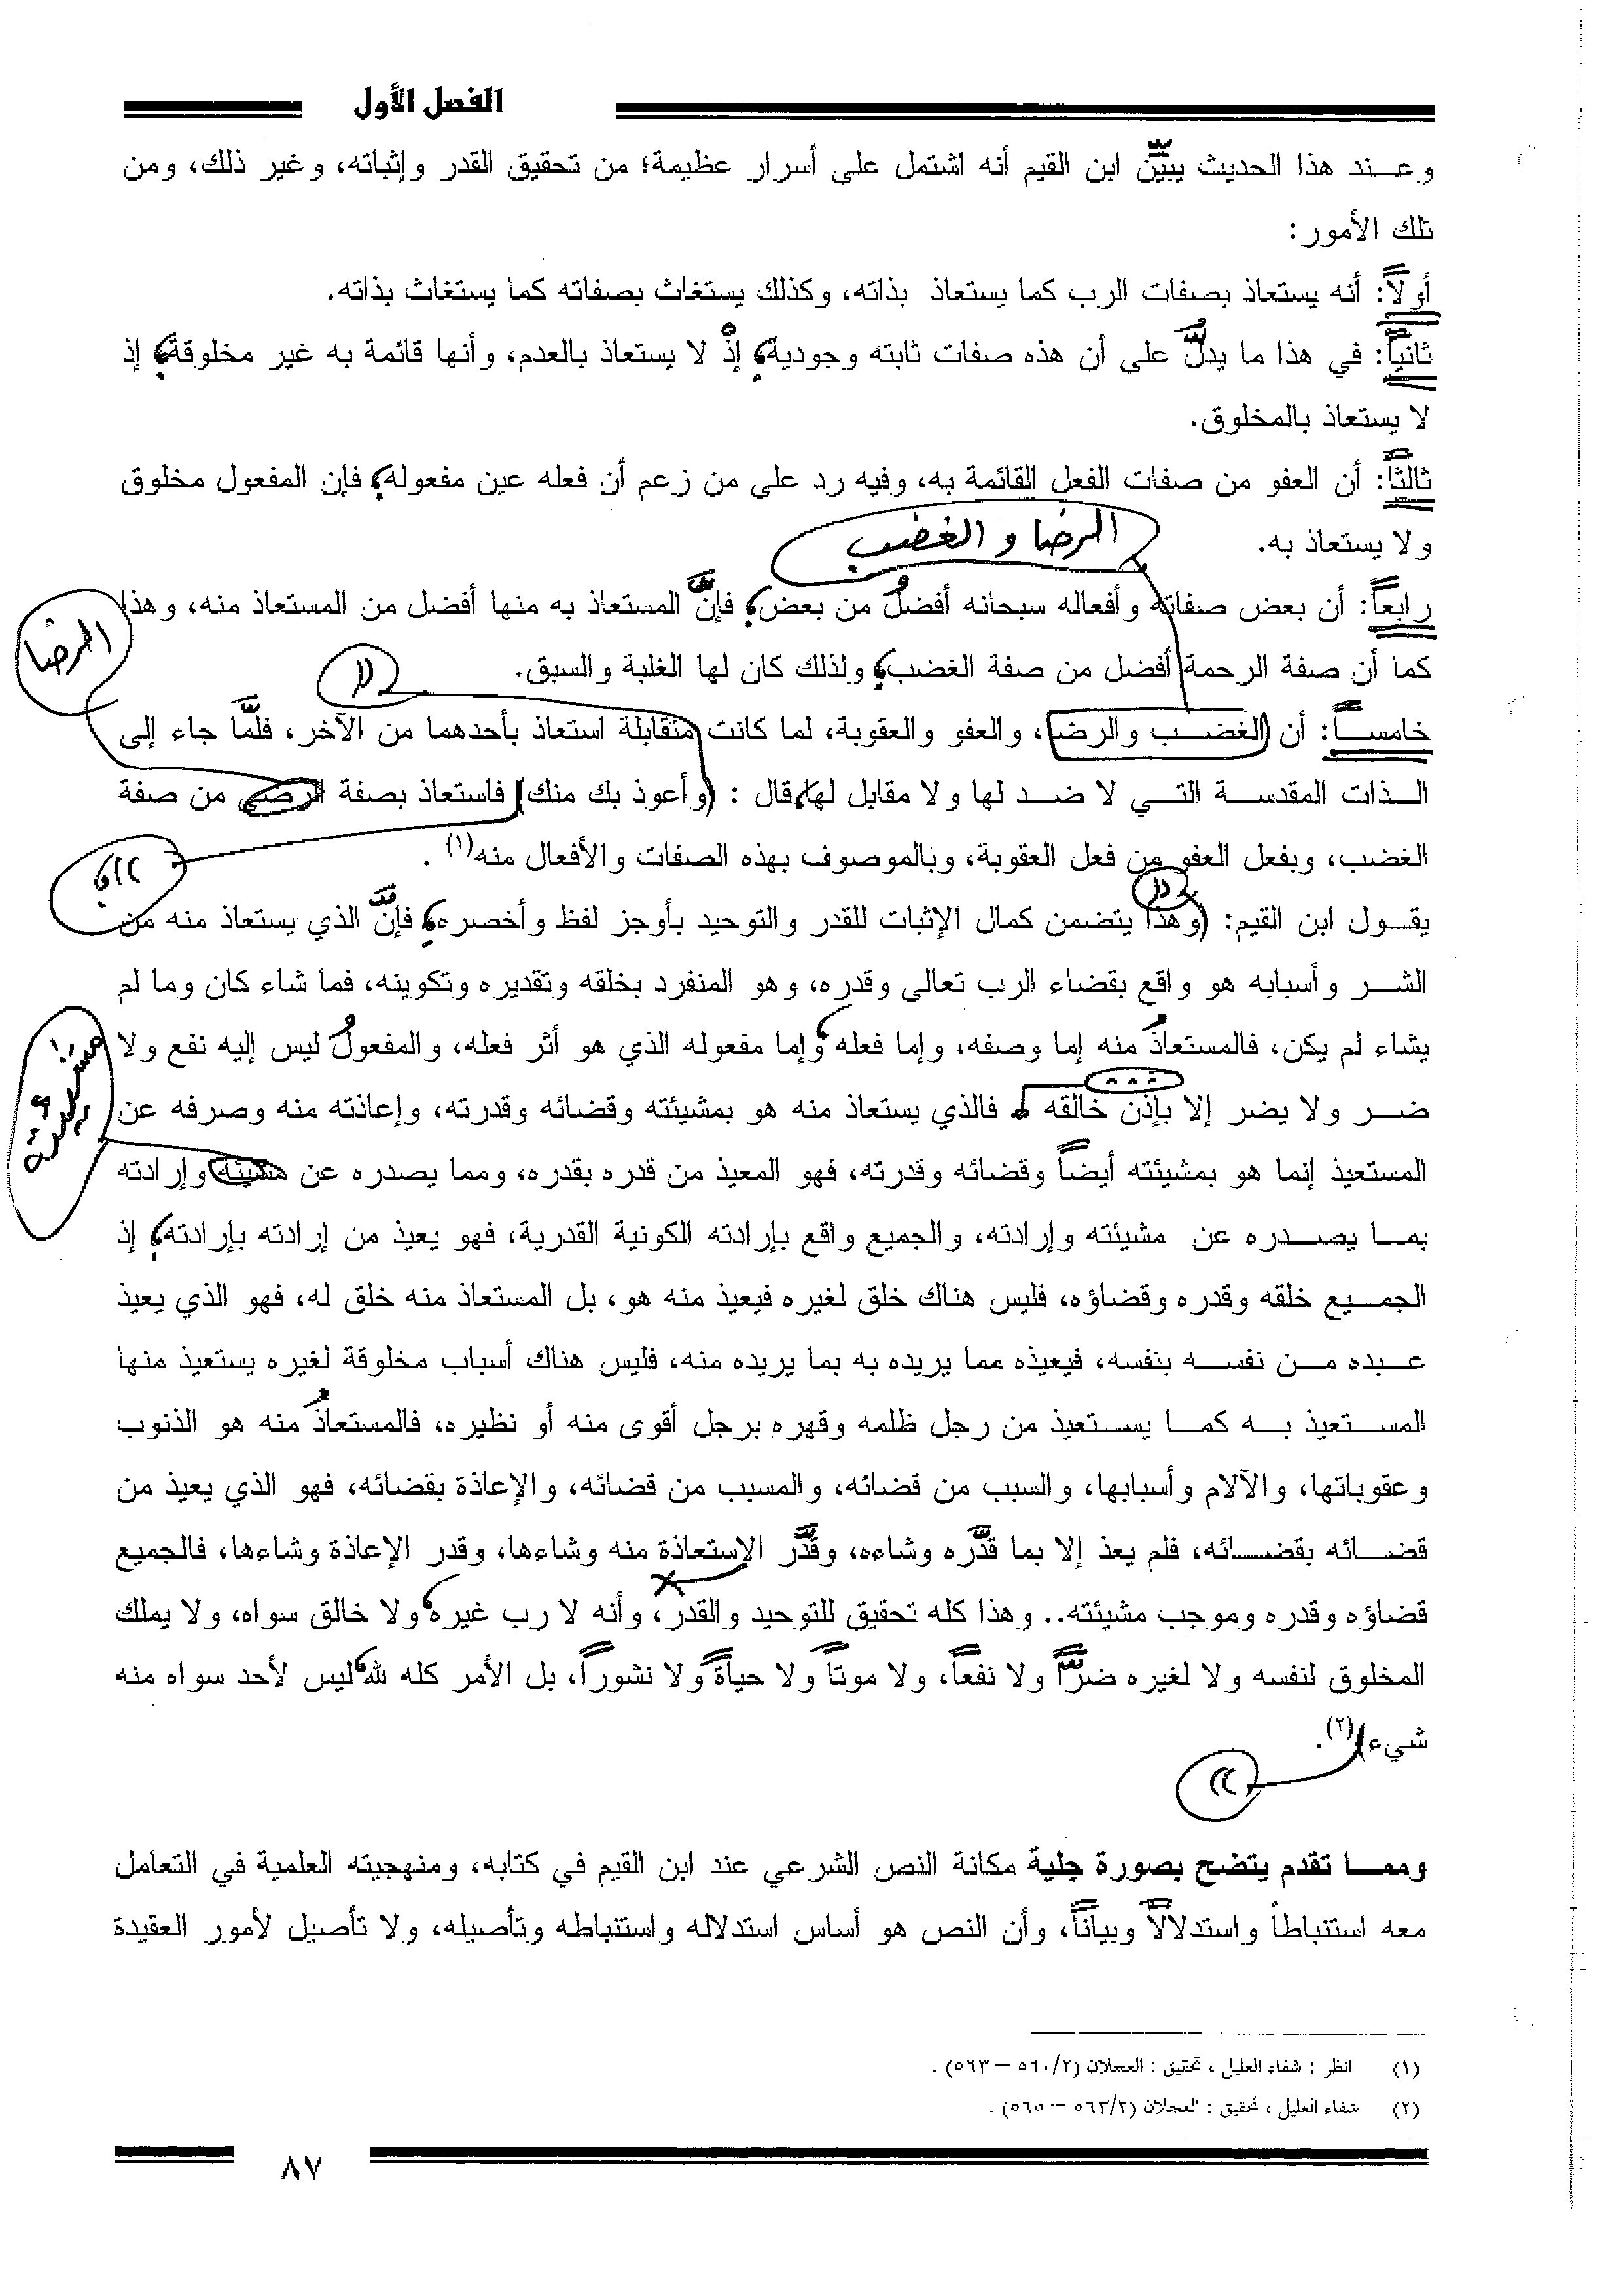 الفصل الأول
وعند هذا الحديث يبيّن ابن القيم أنه اشتمل على أسرار عظيمة؛ من تحقيق القدر وإثباته، وغير ذلك، ومن
تلك الأمور:
أولاً: أنه يستعاذ بصفات الرب كما يستعاذ بذاته، وكذلك يستغاث بصفاته كما يستغاث بذاته.
ثانياً: في هذا ما يدلّ على أن هذه صفات ثابته وجودية؛ إذْ لا يستعاذ بالعدم، وأنها قائمة به غير مخلوقة؛ إذ
لا يستعاذ بالمخلوق.
ثالثاً: أن العفو من صفات الفعل القائمة به، وفيه رد على من زعم أن فعله عين مفعوله؛ فإن المفعول مخلوق
ولا يستعاذ به.
الرضا والغضب
رابعاً: أن بعض صفاته وأفعاله سبحانه أفضلُ من بعض؛ فإنَّ المستعاذ به منها أفضل من المستعاذ منه، وهذا
الرضا
كما أن صفة الرحمة أفضل من صفة الغضب؛ ولذلك كان لها الغلبة والسبق.
))
خامساً: أن الغضب والرضا، والعفو والعقوبة، لما كانت متقابلة استعاذ بأحدهما من الآخر، فلمَّا جاء إلى
الذات المقدسة التي لا ضد لها ولا مقابل لها، قال : (وأعوذ بك منك) فاستعاذ بصفة الرضى من صفة
الغضب، وبفعل العفو من فعل العقوبة، وبالموصوف بهذه الصفات والأفعال منه(١) .
((،
))
يقول ابن القيم: (وهذا يتضمن كمال الإثبات للقدر والتوحيد بأوجز لفظ وأخصره؛ فإنَّ الذي يستعاذ منه من
الشر وأسبابه هو واقع بقضاء الرب تعالى وقدره، وهو المنفرد بخلقه وتقديره وتكوينه، فما شاء كان وما لم
يشاء لم يكن، فالمستعاذُ منه إما وصفه، وإما فعله، وإما مفعوله الذي هو أثر فعله، والمفعولُ ليس إليه نفع ولا
ضر ولا يضر إلا بإذن خالقه ... فالذي يستعاذ منه هو بمشيئته وقضائه وقدرته، وإعاذته منه وصرفه عن
مشيئته
المستعيذ إنما هو بمشيئته أيضاً وقضائه وقدرته، فهو المعيذ من قدره بقدره، ومما يصدره عن مشيئته وإرادته
بما يصدره عن مشيئته وإرادته، والجميع واقع بإرادته الكونية القدرية، فهو يعيذ من إرادته بإرادته؛ إذ
الجميع خلقه وقدره وقضاؤه، فليس هناك خلق لغيره فيعيذ منه هو، بل المستعاذ منه خلق له، فهو الذي يعيذ
عبده من نفسه بنفسه، فيعيذه مما يريده به بما يريده منه، فليس هناك أسباب مخلوقة لغيره يستعيذ منها
المستعيذ به كما يستعيذ من رجل ظلمه وقهره برجل أقوى منه أو نظيره، فالمستعاذُ منه هو الذنوب
وعقوباتها، والآلام وأسبابها، والسبب من قضائه، والمسبب من قضائه، والإعاذة بقضائه، فهو الذي يعيذ من
قضائه بقضائه، فلم يعذ إلا بما قدَّره وشاءه، وقدَّر الإستعاذة منه وشاءها، وقدر الإعاذة وشاءها، فالجميع
قضاؤه وقدره وموجب مشيئته.. وهذا كله تحقيق للتوحيد والقدر، وأنه لا رب غيره، ولا خالق سواه، ولا يملك
المخلوق لنفسه ولا لغيره ضرّاً ولا نفعاً، ولا موتاً ولا حياةً ولا نشوراً، بل الأمر كله لله، ليس لأحد سواه منه
شيء)(٢).
((
ومما تقدم يتضح بصورة جلية مكانة النص الشرعي عند ابن القيم في كتابه، ومنهجيته العلمية في التعامل
معه استنباطاً واستدلالاً وبياناً، وأن النص هو أساس استدلاله واستنباطه وتأصيله، ولا تأصيل لأمور العقيدة
(١) انظر : شفاء العليل ، تحقيق : العجلان (٥٦٠/٢ – ٥٦٣) .
(٢) شفاء العليل ، تحقيق : العجلان (٥٦٣/٢ – ٥٦٥) .
٨٧